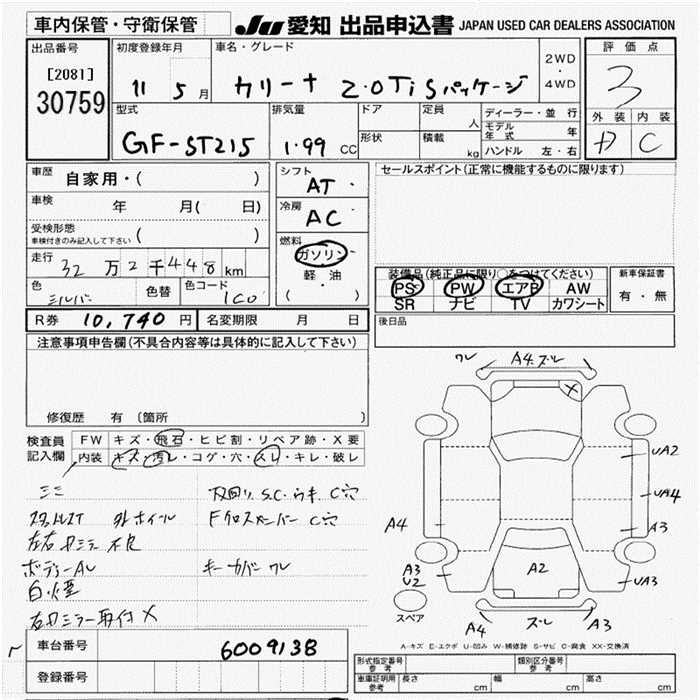 車内保管・守衛保管 JU 愛知 出品申込書 JAPAN USED CAR DEALERS ASSOCIATION
出品番号 初度登録年月 車名・グレード 2WD ・ 4WD 評価点
[2081]
30759
11 5 月
カリーナ 2.0Ti Sパッケージ
3
型式 排気量 ドア 定員 人 ディーラー・並 行
形状 積載 kg モデル年式 年
ハンドル 左・右
外装 内装
GF-ST215 1.99 CC
D C
車歴 自家用・( )
シフト AT ・
セールスポイント(正常に機能するものに限ります)
車検 年 月( 日)
冷房 AC ・
受検形態 ( )
車検付きのみ記入して下さい
燃料 ガソリン・
軽・油
( )
走行 32万2千448km
装備品(純正品に限り○をつけてください) 新車保証書
PS PW エアB AW 有・無
SR ナビ TV カワシート
色 シルバー 色替 色コード 1C0
R券 10,740 円 名変期限 月 日
後日品
注意事項申告欄(不具合内容等は具体的に記入して下さい)
修復歴 有 〔箇所 〕
ワレ A4.ズレ
X
UA2
UA4
A4 A3
A3 U2 A2 UA3
スペア
A4 ズレ A3
検査員記入欄 FW キズ・飛石・ヒビ割・リペア跡・X要
内装 キズ・汚レ・コゲ・穴・スレ・キレ・破レ
ミミ 下回リ S.C.ウキ C穴
スタッドレスT 外ホイール Fクロスメンバー C穴
左右ドミラー不良
ボディーAU キーカバーワレ
白煙
右ドミラー取付X
車台番号 6009138
登録番号
A-キズ E-エクボ U-凹み W-補修跡 S-サビ C-腐食 XX-交換済
形式指定番号 参考 類別区分番号 参考
車庫証明用 参考 長さ cm 幅 cm 高さ cm